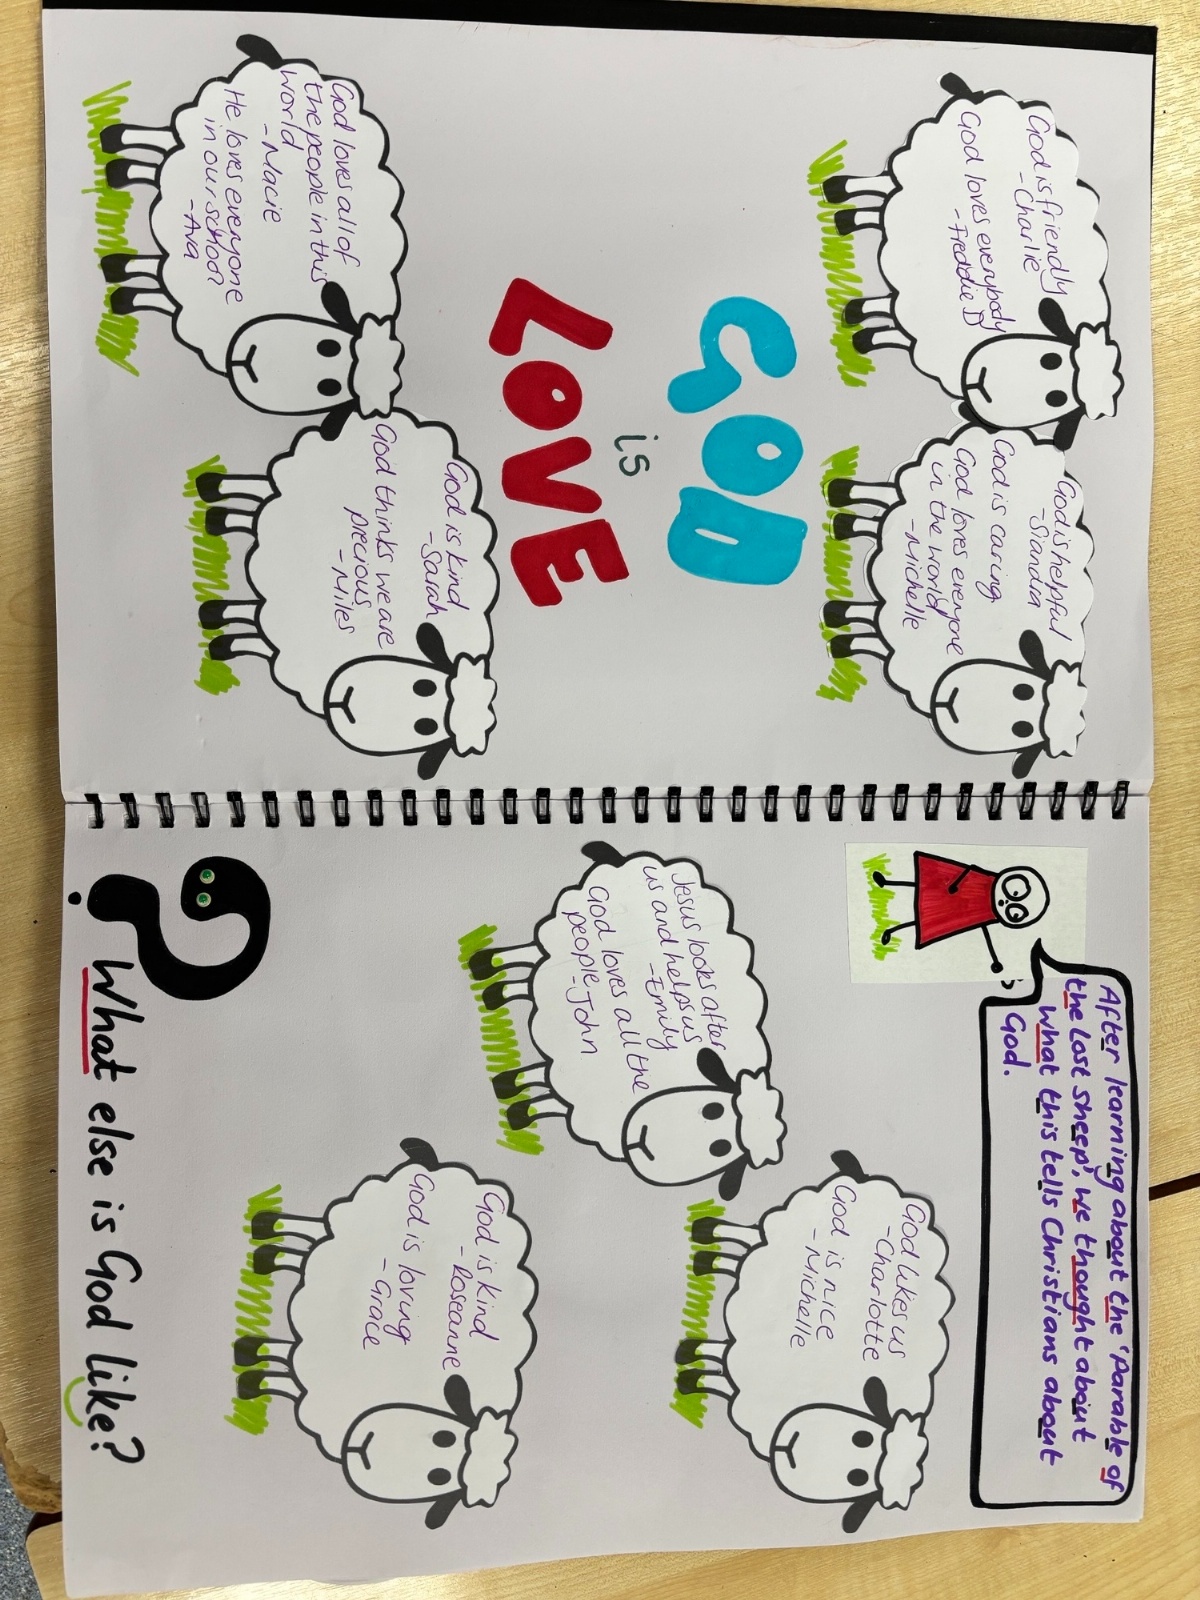 God is friendly
- Charlie
God loves everybody
- Freddie D
God is helpful
- Siandra
God is caring
God loves everyone
in the world
- Michelle
GOD
is
LOVE
God loves all of
the people in this
world
- Macie
He loves everyone
in our school
- Ava
God is kind
- Sarah
God thinks we are
precious
- Miles
After learning about the 'Parable of
the Lost sheep', we thought about
what this tells Christians about
God.
Jesus looks after
us and helps us
- Emily
God loves all the
people - John
God likes us
- Charlotte
God is nice
- Michelle
God is kind
- Roseanne
God is loving
- Grace
? What else is God like?